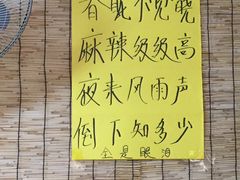 春眠不觉晓
麻辣级级高
夜来风雨声
倒下知多少
全是眼泪